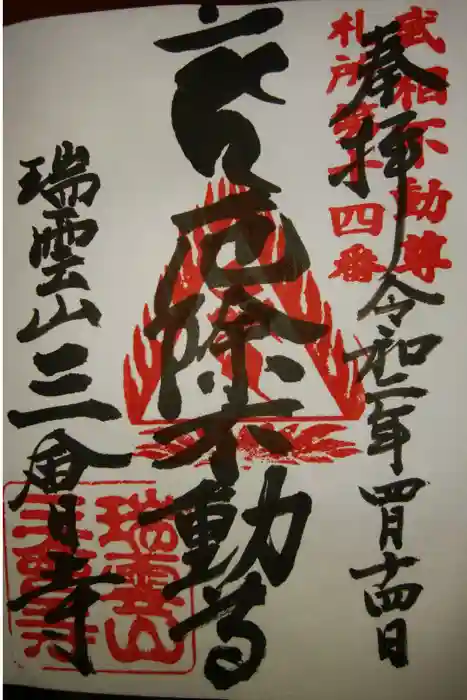 武相不動尊
札所第十四番
奉拝 令和二年四月十四日
厄除不動尊
瑞雲山三會寺
瑞雲山
三會寺